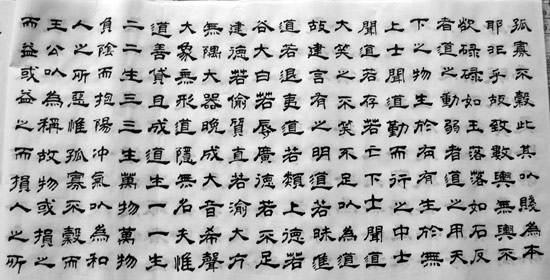 孤寡不穀此其以賤為本
耶非乎故致數輿無輿不
欲碌碌如玉落落如石反
者道之動弱者道之用天
下之物生於有有生於無
上士聞道勤而行之中士
聞道若存若亡下士聞道
大笑之不笑不足以為道
故建言有之明道若昧進
道若退夷道若類上德若
谷大白若辱廣德若不足
建德若偷質直若渝大方
無隅大器晚成大音希聲
大象無形道隱無名夫惟
道善貸且成道生一一生
二二生三三生萬物萬物
負陰而抱陽沖氣以為和
人之所惡惟孤寡不穀而
王公以為稱故物或損之
而益或益之而損人之所